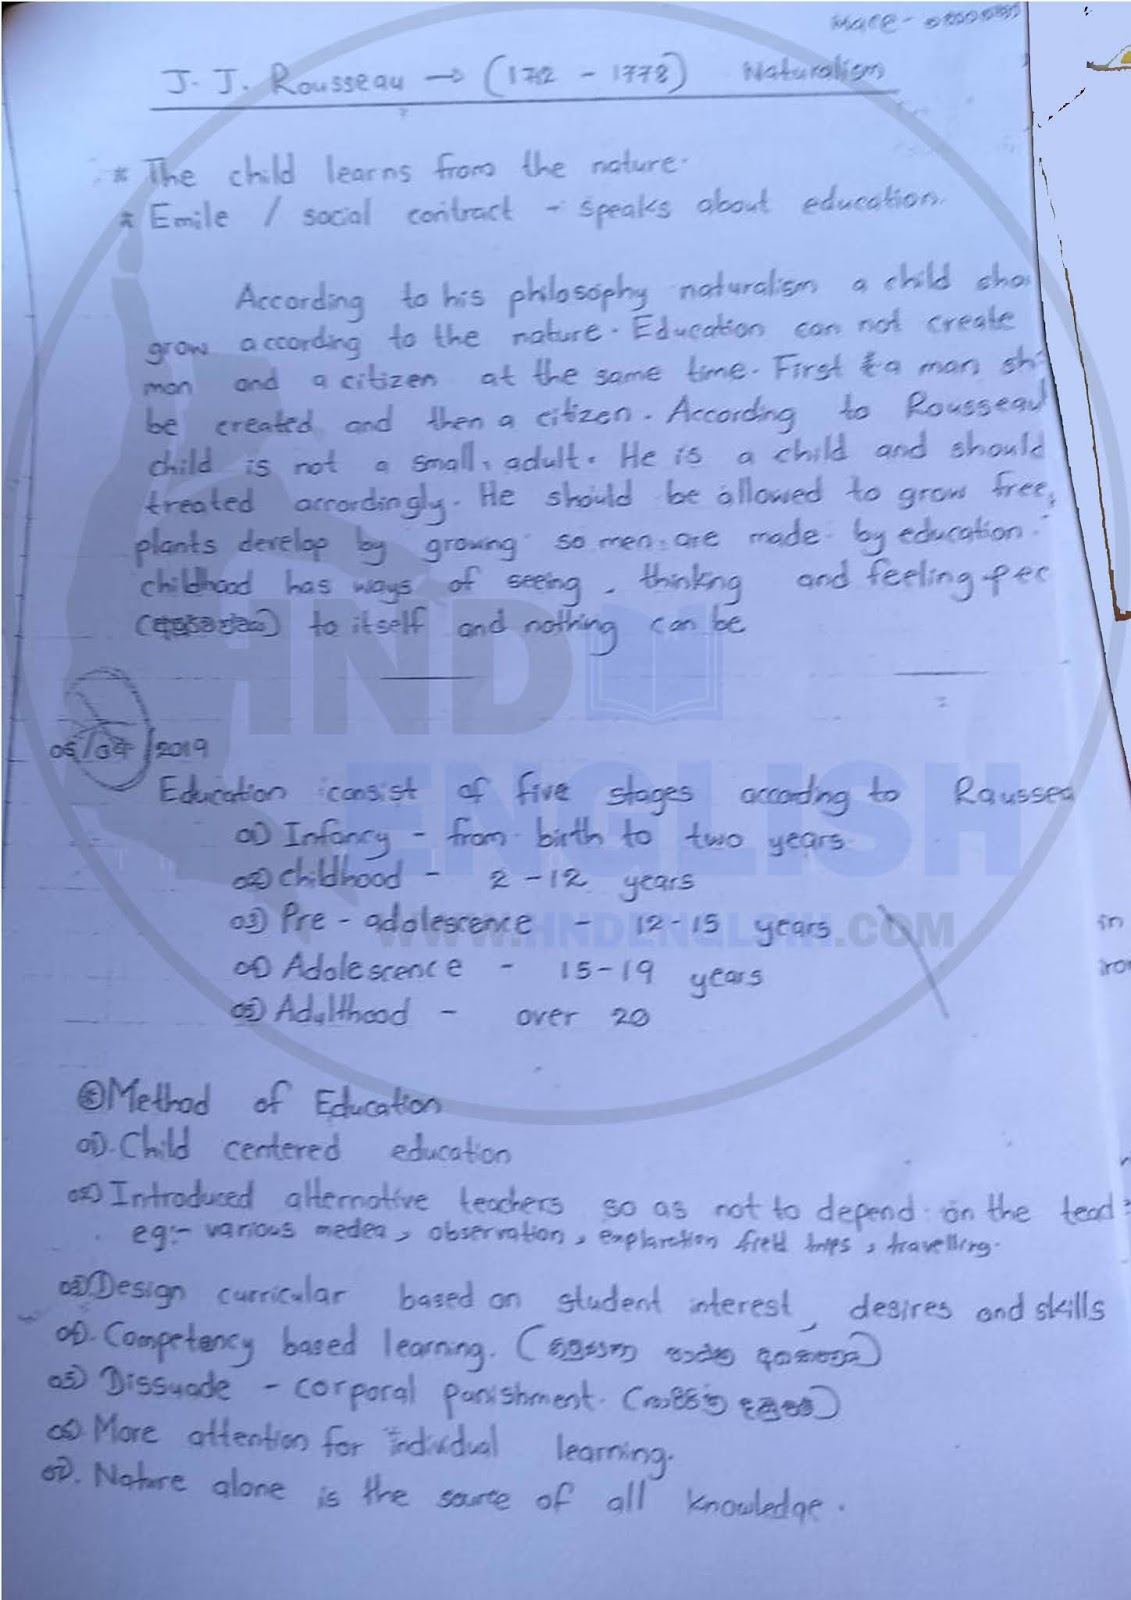 J. J. Rousseau → (1712 - 1778) Naturalism
* The child learns from the nature.
* Emile / social contract - speaks about education.
According to his philosophy naturalism a child sho
grow according to the nature. Education can not create
man and a citizen at the same time. First a man sh
be created and then a citizen. According to Rousseau
child is not a small adult. He is a child and should
treated accordingly. He should be allowed to grow free,
plants develop by growing so men are made by education.
childhood has ways of seeing, thinking and feeling pec
to itself and nothing can be
HND
05/ /2019
ENGLISH
Education consist of five stages according to Raussea
01) Infancy - from birth to two years
02) Childhood - 2 - 12 years
03) Pre - adolescence - 12 - 15 years
WWW.HNDENGLISH.COM
in
04) Adolescence - 15 - 19 years
05) Adulthood - over 20
* Method of Education
01). Child centered education
02) Introduced alternative teachers so as not to depend on the teac
eg:- various medea, observation, explaration field trips, travelling.
03). Design curricular based on student interest, desires and skills
04). Competency based learning.
05) Dissuade - corporal panishment.
06) More attention for individual learning.
07). Nature alone is the source of all knowledge.